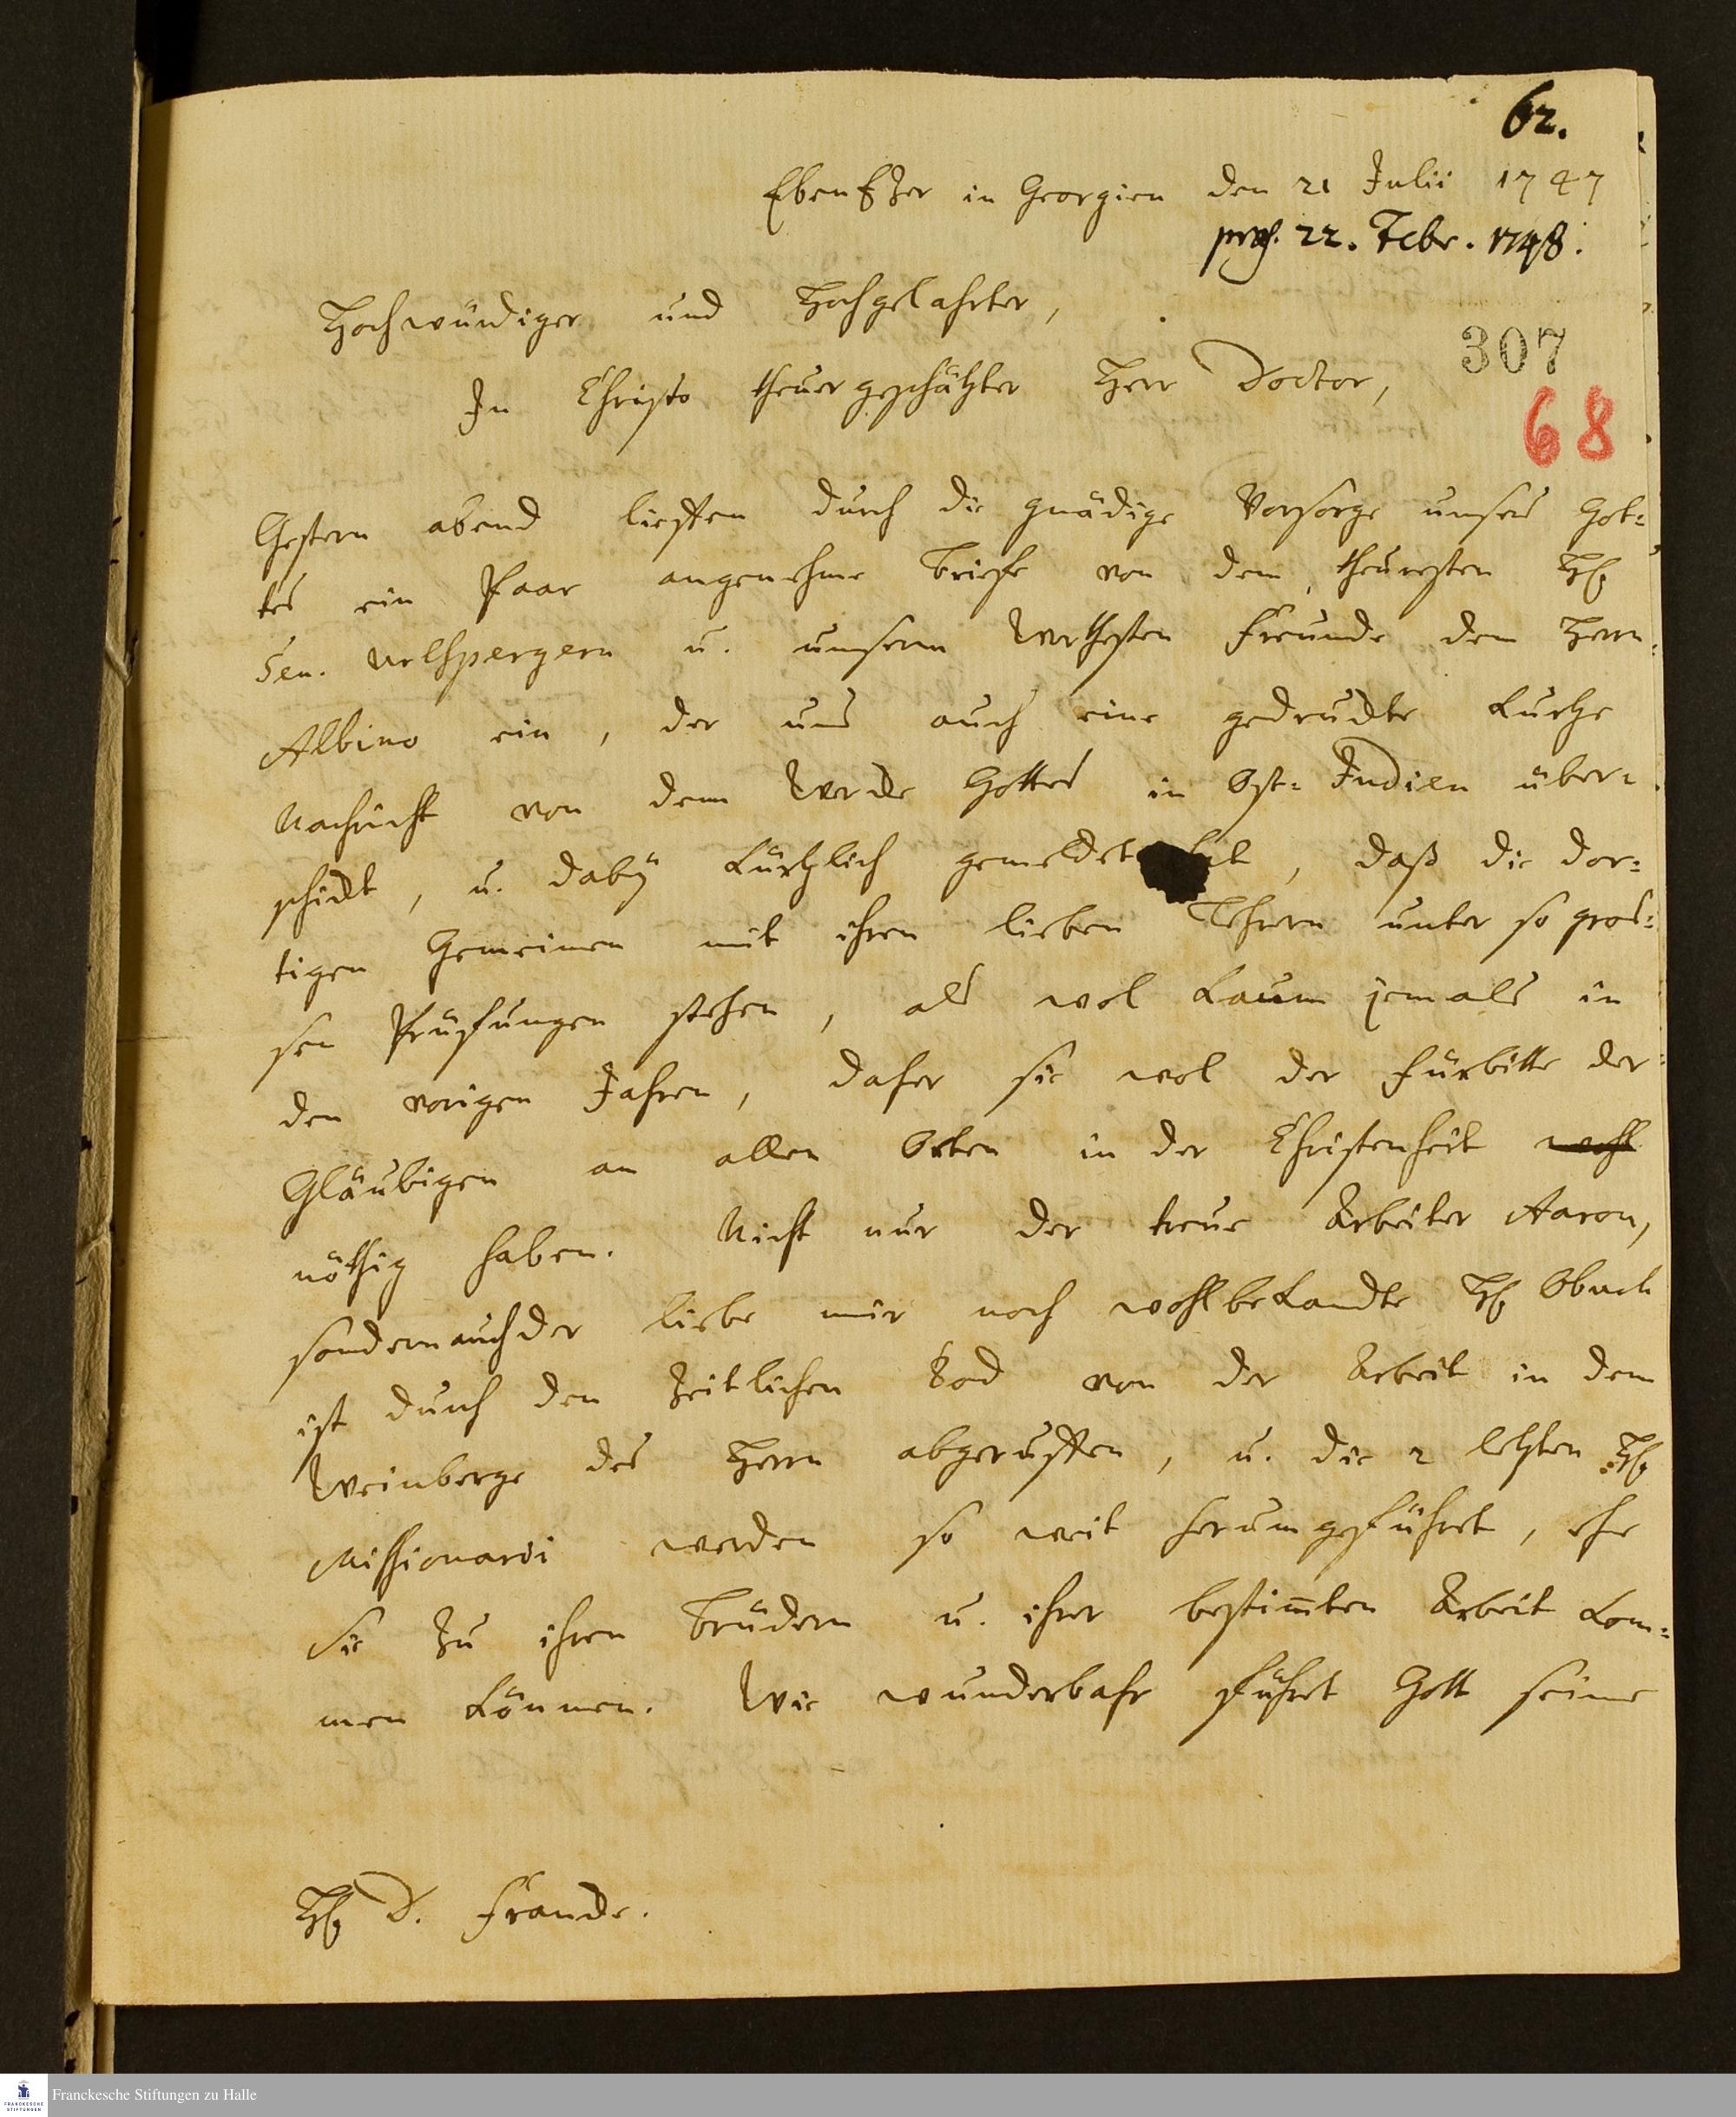 62.
EbenEzer in Georgien den 21 Julii 1747
præs. 22. Febr. 1748.
Hochwürdiger und Hochgelahrter,
307
In Christo theuer geschätzter Herr Doctor,
68
Gestern abend lieffen durch die gnädige Vorsorge unsers Got-
tes ein Paar angenehme Briefe von dem theuresten H.
Sen. Urlspergern u. unserm Werthesten Freunde dem Herrn
Albino ein, der uns auch eine gedruckte kurtze
Nachricht von dem Wercke Gottes in Ost-Indien über-
schickt, u. dabey kürtzlich gemeldet hat, daß die dor-
tigen Gemeinen mit ihren lieben Lehrern unter so gros-
sen Prüfungen stehen, als wol kaum jemals in
den vorigen Jahren, daher sie wol der Fürbitte der
Gläubigen an allen Orten in der Christenheit wohl
nöthig haben. Nicht nur der treue Arbeiter Aaron,
sondern auch der liebe mir noch wohlbekandte H. Obuch
ist durch den zeitlichen Tod von der Arbeit in dem
Weinberge des Herrn abgeruffen, u. die 2 letzten H.
Missionarii werden so weit herumgeführet, ehe
Sie zu ihren Brüdern u. ihrer bestim̄ten Arbeit kom-
men können. Wie wunderbahr führet Gott seine
H. D. Francke.
Franckesche Stiftungen zu Halle
FRANCKESCHE
STIFTUNGEN